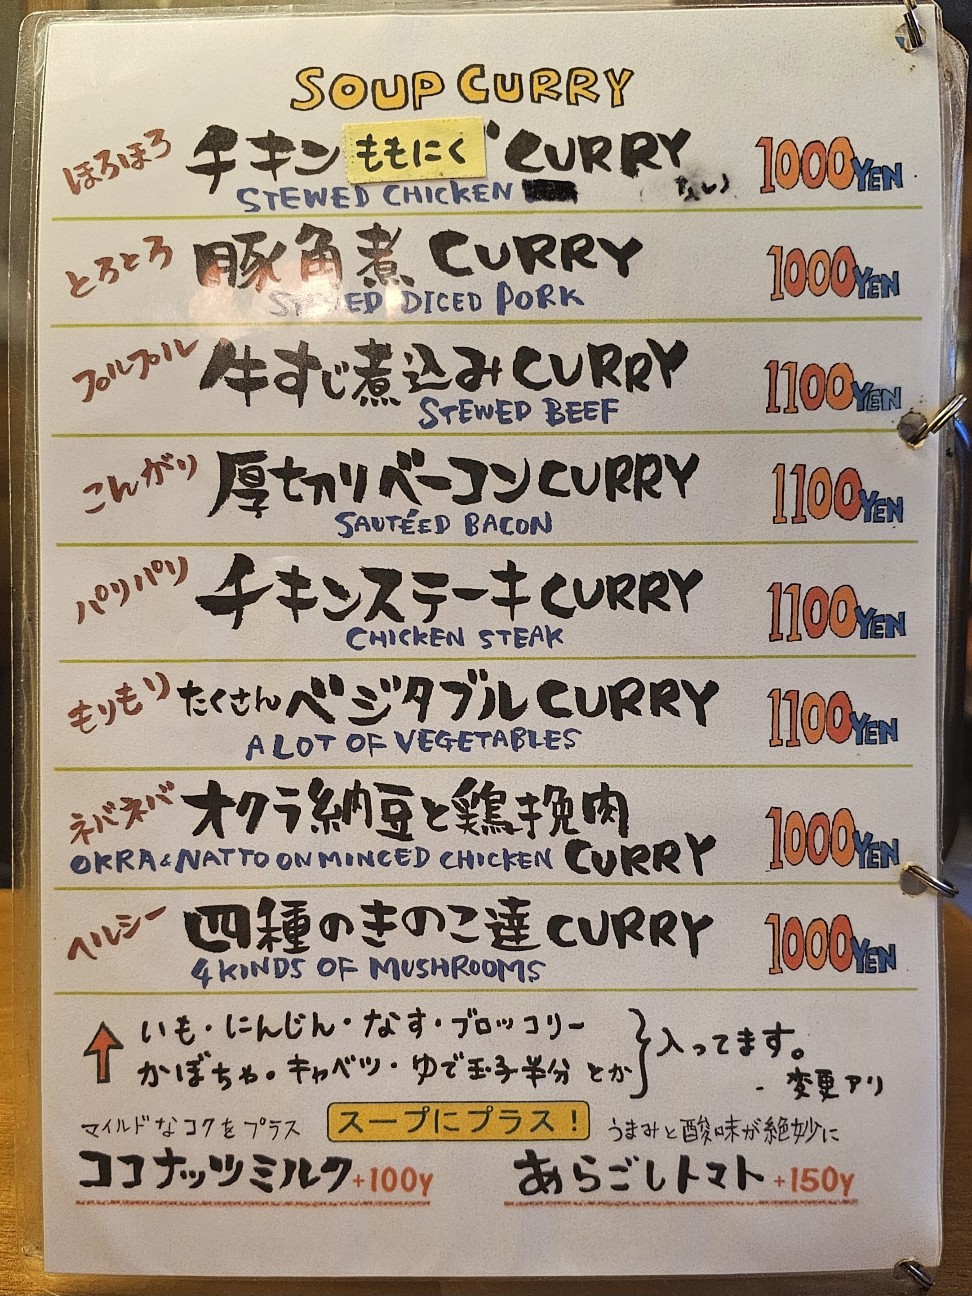 SOUP CURRY
ほろほろ チキン ももにく CURRY 1000YEN
STEWED CHICKEN
とろとろ 豚角煮 CURRY 1000YEN
STEWED DICED PORK
プルプル 牛すじ煮込み CURRY 1100YEN
STEWED BEEF
こんがり 厚切りベーコン CURRY 1100YEN
SAUTÉED BACON
パリパリ チキンステーキ CURRY 1100YEN
CHICKEN STEAK
もりもり たくさんベジタブル CURRY 1100YEN
A LOT OF VEGETABLES
ネバネバ オクラ納豆と鶏挽肉 1000YEN
OKRA & NATTO ON MINCED CHICKEN CURRY
ヘルシー 四種のきのこ達 CURRY 1000YEN
4 KINDS OF MUSHROOMS
いも・にんじん・なす・ブロッコリー
かぼちゃ。キャベツ・ゆで玉子半分 とか 入ってます。
- 変更アリ
スープにプラス!
マイルドなコクをプラス うまみと酸味が絶妙に
ココナッツミルク +100y あらごしトマト +150y